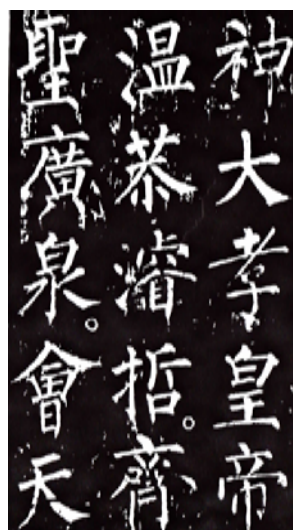 神大孝皇帝
温恭濬哲。齊
聖廣泉。會天